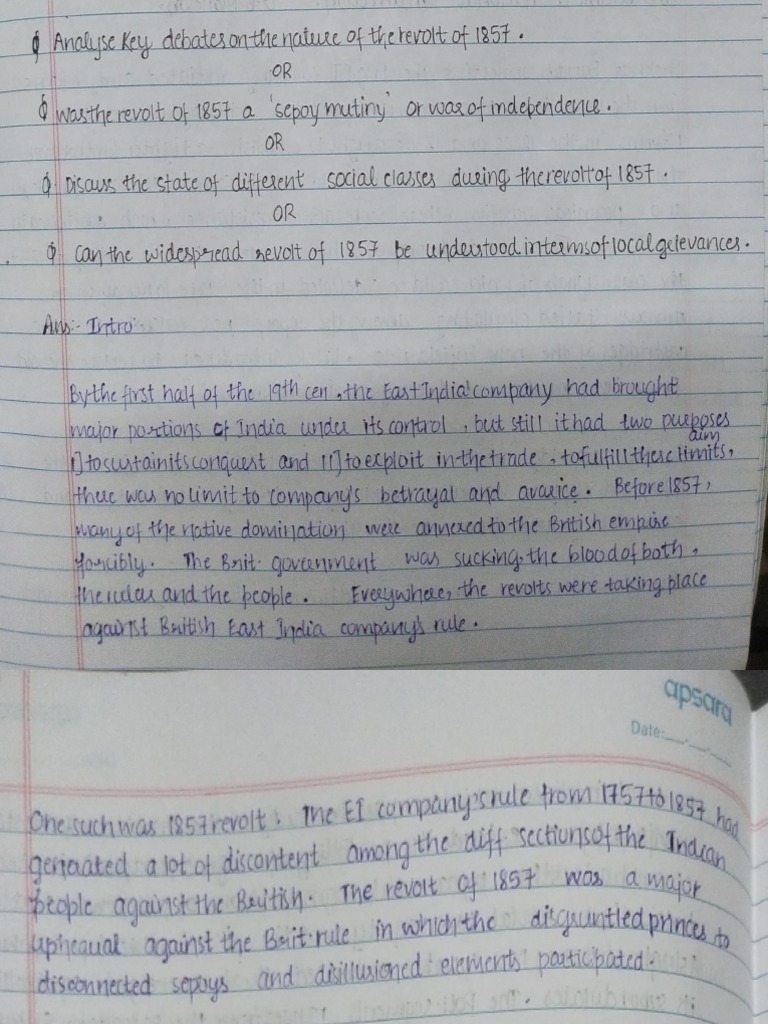 Q Analyse Key debates on the nature of the revolt of 1857.
OR
Q was the revolt of 1857 a 'sepoy mutiny' or war of independence.
OR
Q Discuss the state of different social classes during the revolt of 1857.
OR
Q Can the widespread revolt of 1857 be understood in terms of local grievances.
Ans:- Intro
By the first half of the 19th cen, the East India company had brought
major portions of India under its control, but still it had two purposes
aim
i] to sustain its conquest and ii] to exploit in the trade, to fulfill these limits,
there was no limit to company's betrayal and avarice. Before 1857,
many of the native domination were annexed to the British empire
forcibly. The Brit. government was sucking the blood of both,
the rulers and the people. Everywhere, the revolts were taking place
against British East India company's rule.
apsara
Date:__.__.__
One such was 1857 revolt: The EI company's rule from 1757 to 1857 had
generated a lot of discontent among the diff sections of the Indian
people against the British. The revolt of 1857 was a major
upheaval against the Brit. rule in which the disgruntled princes to
disconnected sepoys and disillusioned elements participated.